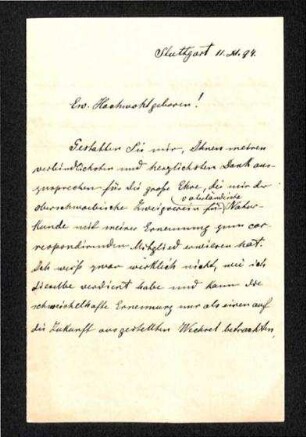 Stuttgart 11.XI.94.
Ew. Hochwohlgeboren!
Gestatten Sie mir, Ihnen meinen
verbindlichsten und herzlichsten Dank aus-
zusprechen für die große Ehre, die mir der
oberschwäbische Zweigverein für vaterländische Natur-
kunde mit meiner Ernennung zum cor-
respondirenden Mitglied erwiesen hat.
Ich weiß zwar wirklich nicht, wie ich
dieselbe verdient habe und kann die
schmeichelhafte Ernennung nur als einen auf
die Zukunft ausgestellten Wechsel betrachten,